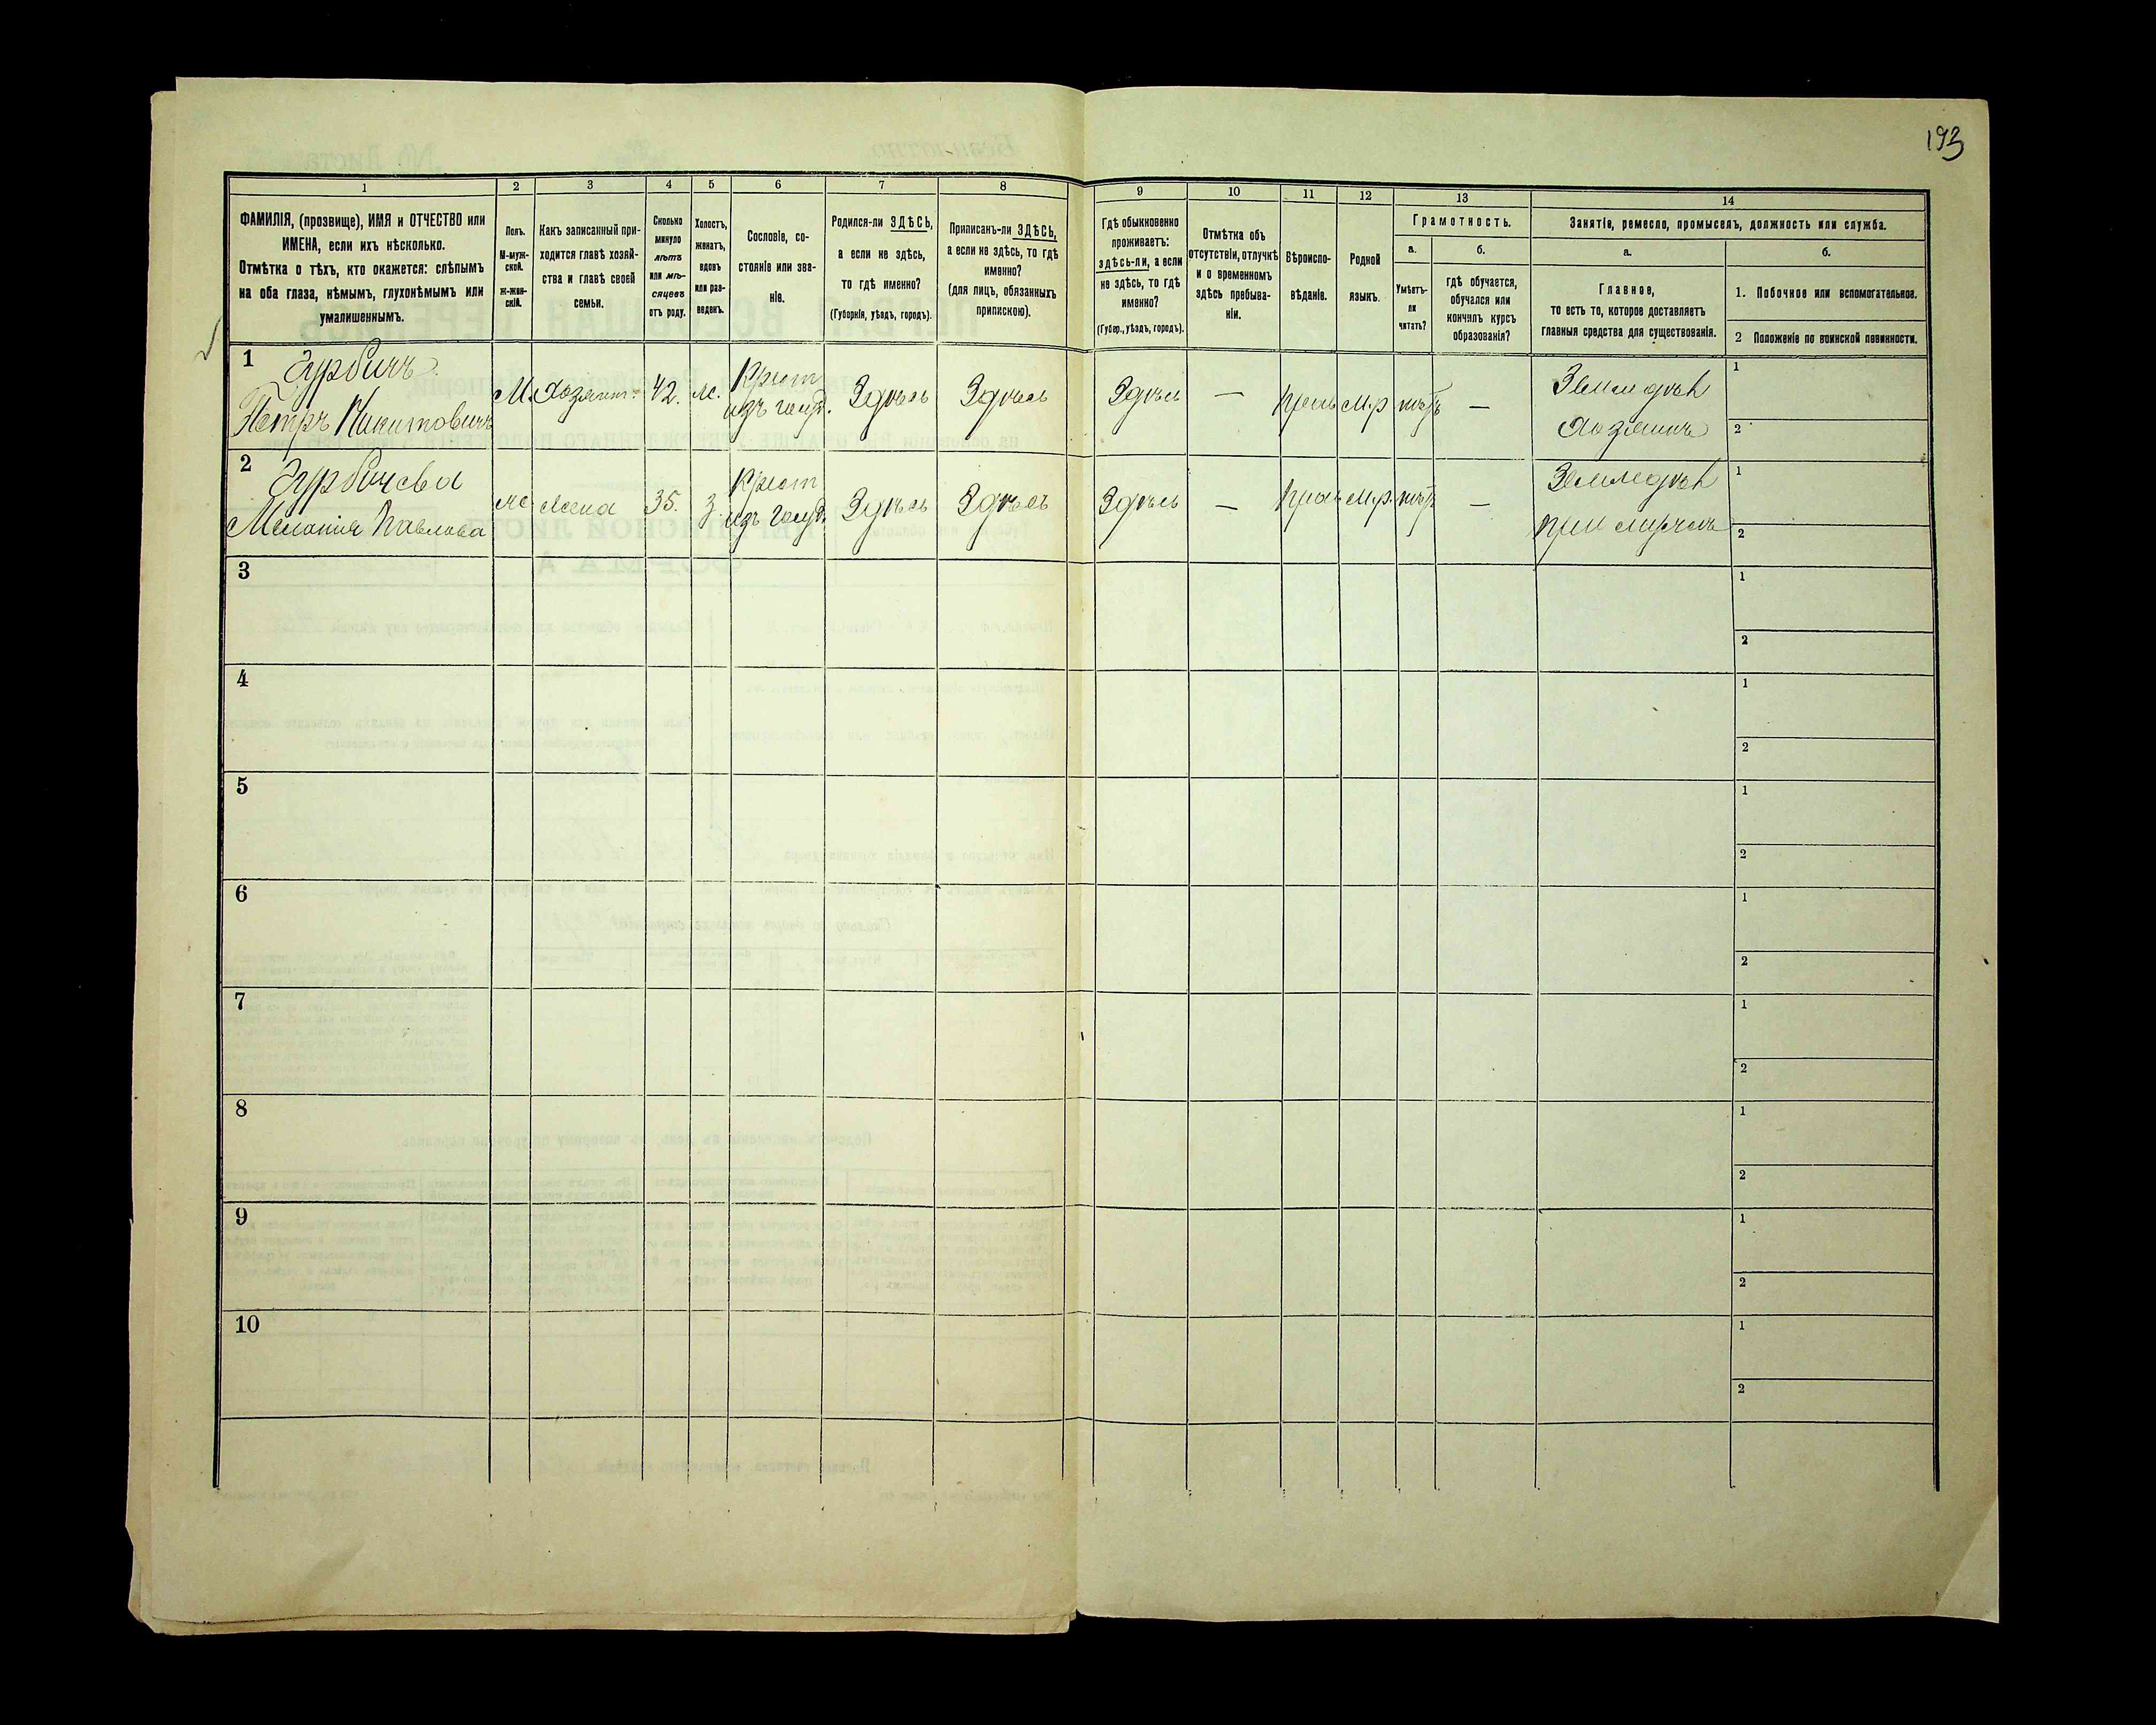 193
1 2 3 4 5 6 7 8 9 10 11 12 13 14
ФАМИЛІЯ, (прозвище), ИМЯ и ОТЧЕСТВО или
ИМЕНА, если ихъ нѣсколько.
Отмѣтка о тѣхъ, кто окажется: слѣпымъ
на оба глаза, нѣмымъ, глухонѣмымъ или
умалишеннымъ.
Полъ.
М-муж-
ской.
ж-жен-
скій.
Какъ записанный при-
ходится главѣ хозяй-
ства и главѣ своей
семьи.
Сколько
минуло
лѣтъ
или мѣ-
сяцевъ
отъ роду.
Холостъ,
женатъ,
вдовъ
или раз-
веденъ.
Сословіе, со-
стояніе или зва-
ніе.
Родился-ли ЗДѢСЬ,
а если не здѣсь,
то гдѣ именно?
(Губернія, уѣздъ, городъ).
Приписанъ-ли ЗДѢСЬ,
а если не здѣсь, то гдѣ
именно?
(для лицъ, обязанныхъ
припискою).
Гдѣ обыкновенно
проживаетъ:
здѣсь-ли, а если
не здѣсь, то гдѣ
именно?
(Губер., уѣздъ, городъ).
Отмѣтка объ
отсутствіи, отлучкѣ
и о временномъ
здѣсь пребыва-
ніи.
Вѣроиспо-
вѣданіе.
Родной
языкъ.
Грамотность.
а.
Умѣетъ-
ли
читать?
б.
гдѣ обучается,
обучался или
кончилъ курсъ
образованія?
Занятіе, ремесло, промыселъ, должность или служба.
а.
Главное,
то есть то, которое доставляетъ
главныя средства для существованія.
б.
1. Побочное или вспомогательное.
2 Положеніе по воинской повинности.
1 Гурбичъ
Петръ Никитовичъ
М. Хозяинъ 42. ж. Крест
изъ госуд. Здѣсь Здѣсь Здѣсь — прав м.р нѣтъ —
Земледѣл
Хозяинъ
1
2
2 Гурбичева
Меланія Павлова
ж жена 35. з. Крест
изъ госуд. Здѣсь Здѣсь Здѣсь — прав м.р. нѣтъ —
Земледѣл
при мужѣ
1
2
3
1
2
4
1
2
5
1
2
6
1
2
7
1
2
8
1
2
9
1
2
10
1
2